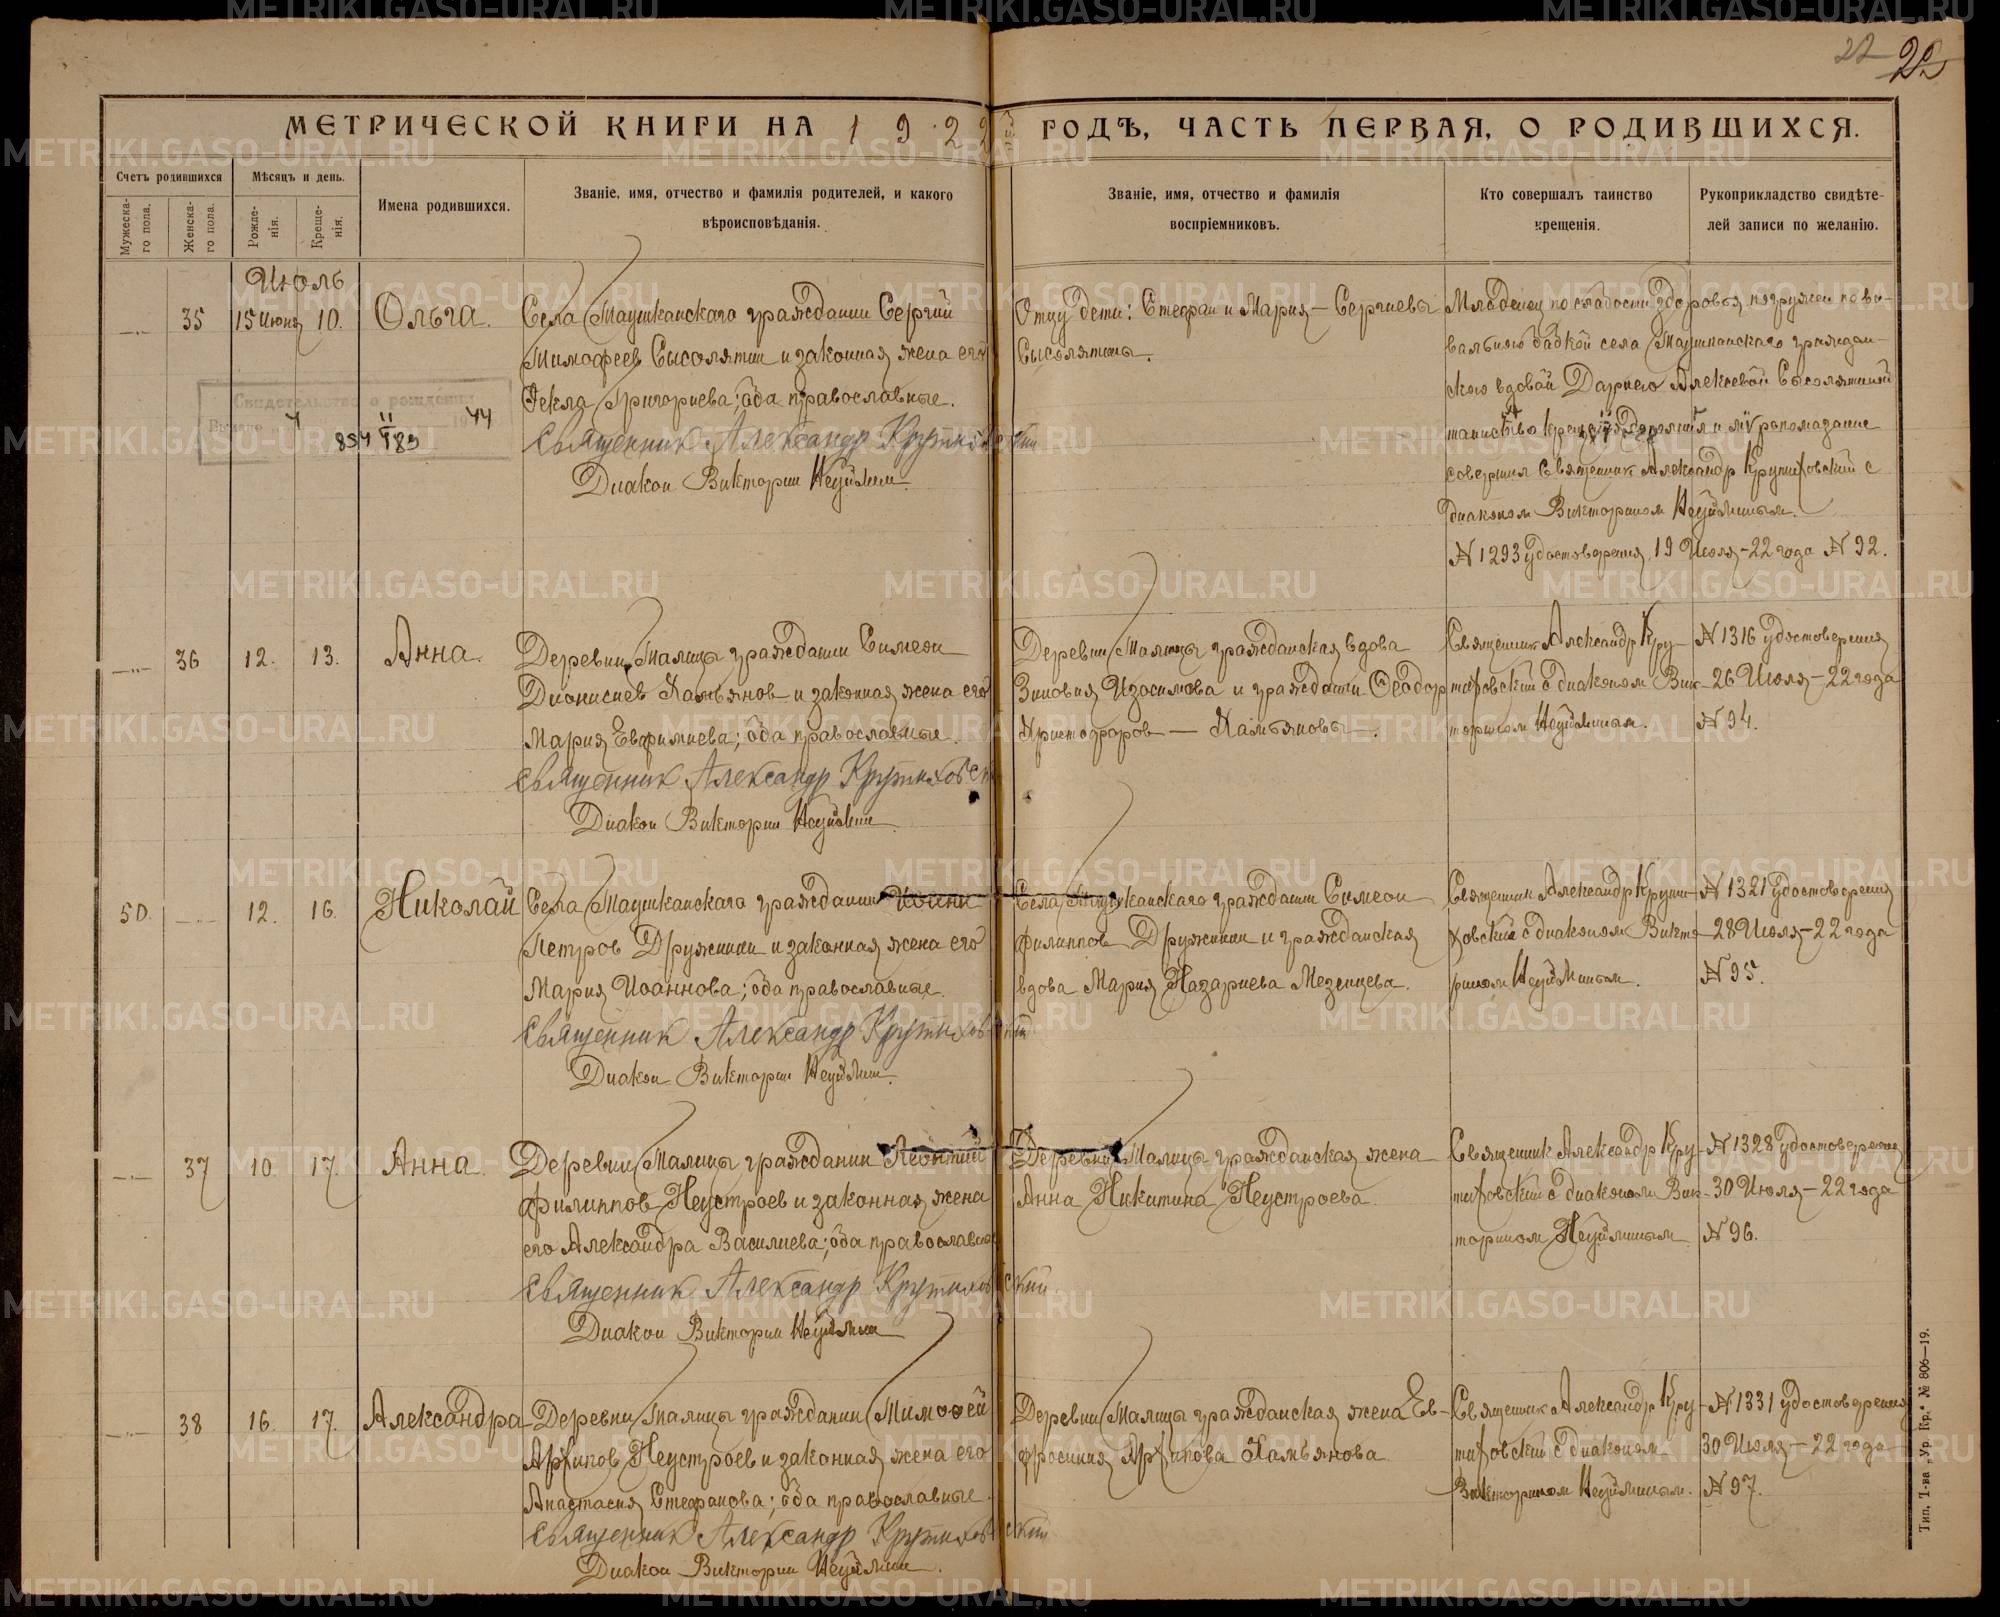 22 22
МЕТРИЧЕСКОЙ КНИГИ НА 1922 ГОДЪ, ЧАСТЬ ПЕРВАЯ, О РОДИВШИХСЯ.
Счетъ родившихся
Мѣсяцъ и день.
Мужеска-го пола.
Женска-го пола.
Рожде-нія.
Креще-нія.
Имена родившихся.
Званіе, имя, отчество и фамилія родителей, и какого
вѣроисповѣданія.
Званіе, имя, отчество и фамилія
воспріемниковъ.
Кто совершалъ таинство
крещенія.
Рукоприкладство свидѣте-
лей записи по желанію.
Июль
35 15 июня 10. Ольга.
Села Таушканскаго гражданин Сергий
Тимофеев Сысолятин и законная жена его
Фекла Григориева; оба православные.
Священник Александр Крутиховский
Диакон Викторин Неуймин.
Свидетельство о рождении
Отцу дети: Стефан и Мария — Сергиевы
Сысолятины.
Младенец по слабости здоровья погружен пови-
вальною бабкой села Таушканскаго граждан-
скою вдовой Дариею Алексевой Сысолятиной
таинство крещения дополнил и миропомазание
совершил Священник Александр Крутиховский с
диаконом Викторином Неуйминым.
N 1293 удостоверения 19 Июля - 22 года N 92.
36 12. 13. Анна.
Деревни Талицы гражданин Симеон
Дионисиев Хамьянов и законная жена его
Мария Евфимиева; оба православные.
Священник Александр Крутиховск
Диакон Викторин Неуймин.
Деревни Талицы гражданская вдова
Зиновия Изосимова и гражданин Феодор
Христофоров — Хамьяновы.
Священник Александр Кру-
тиховский с диаконом Вик-
торином Неуйминым.
N 1316 удостоверения
26 Июля - 22 года
N 94.
50. 12. 16. Николай
Села Таушканскаго гражданин Иоанн
Петров Дружинин и законная жена его
Мария Иоаннова; оба православные.
Священник Александр Крутиховский
Диакон Викторин Неуймин.
Села Таушканскаго гражданин Симеон
Филиппов Дружинин и гражданская
вдова Мария Назариева Мезенцева.
Священник Александр Крути-
ховский с диаконом Викто-
рином Неуйминым.
N 1321 удостоверения
28 Июля - 22 года
N 95.
37 10. 17. Анна.
Деревни Талицы гражданин Леонтий
Филиппов Неустроев и законная жена
его Александра Василиева; оба православные
Священник Александр Крутиховский.
Диакон Викторин Неуймин
Деревни Талицы гражданская жена
Анна Никитина Неустроева.
Священник Александр Кру-
тиховский с диаконом Вик-
торином Неуйминым.
N 1328 удостоверения
30 Июля - 22 года
N 96.
38 16. 17. Александра
Деревни Талицы гражданин Тимофей
Архипов Неустроев и законная жена его
Анастасия Стефанова; оба православные.
Священник Александр Крутиховский
Диакон Викторин Неуймин.
Деревни Талицы гражданская жена Ев-
фросиния Архипова Хамьянова.
Священник Александр Кру-
тиховский с диаконом
Викторином Неуйминым.
N 1331 удостоверения
30 Июля - 22 года
N 97.
Тип. Т-ва „Ур. Кр.“ № 806—19.
METRIKI.GASO-URAL.RU